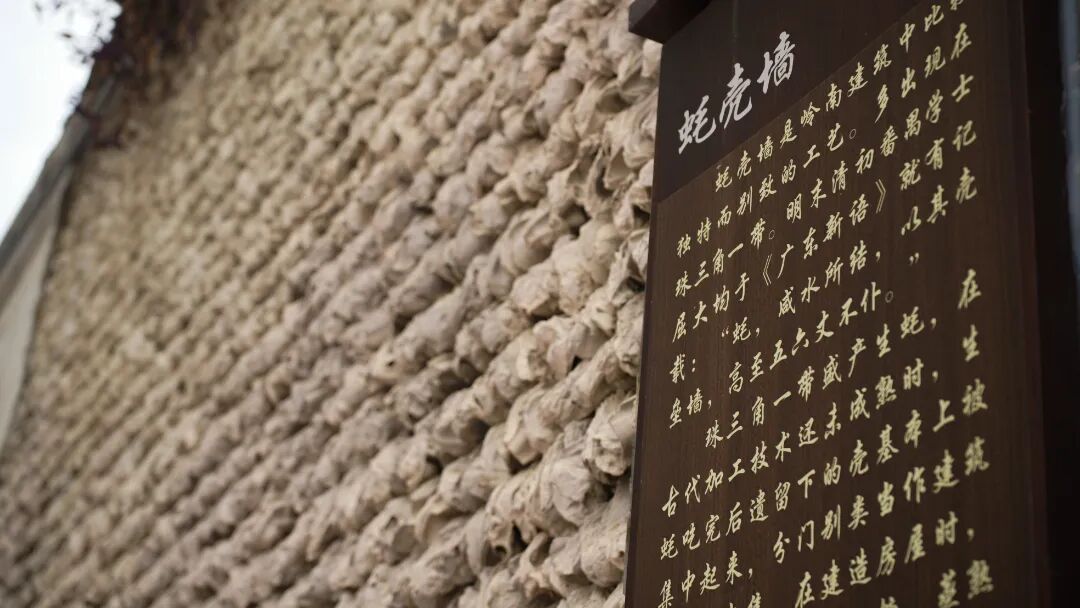 蚝壳墙
蚝壳墙是岭南建筑中比
独特而别致的工艺。多出现在
珠三角一带。明末清初番禺学士
屈大均于《广东新语》就有记
载：“蚝，咸水所结，以其壳
垒墙，高至五六丈不仆。”
珠三角一带盛产生蚝，在
古代加工技术还未成熟时，生
蚝吃完后遗留下的壳基本上被
集中起来，分门别类当作建筑
在建造房屋时，
熟